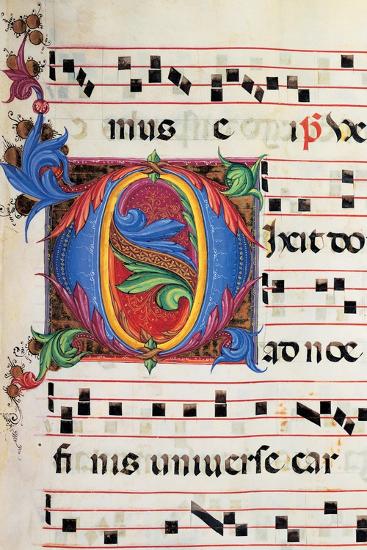 mus Ve
Dixit do
ad noe
finis universe car